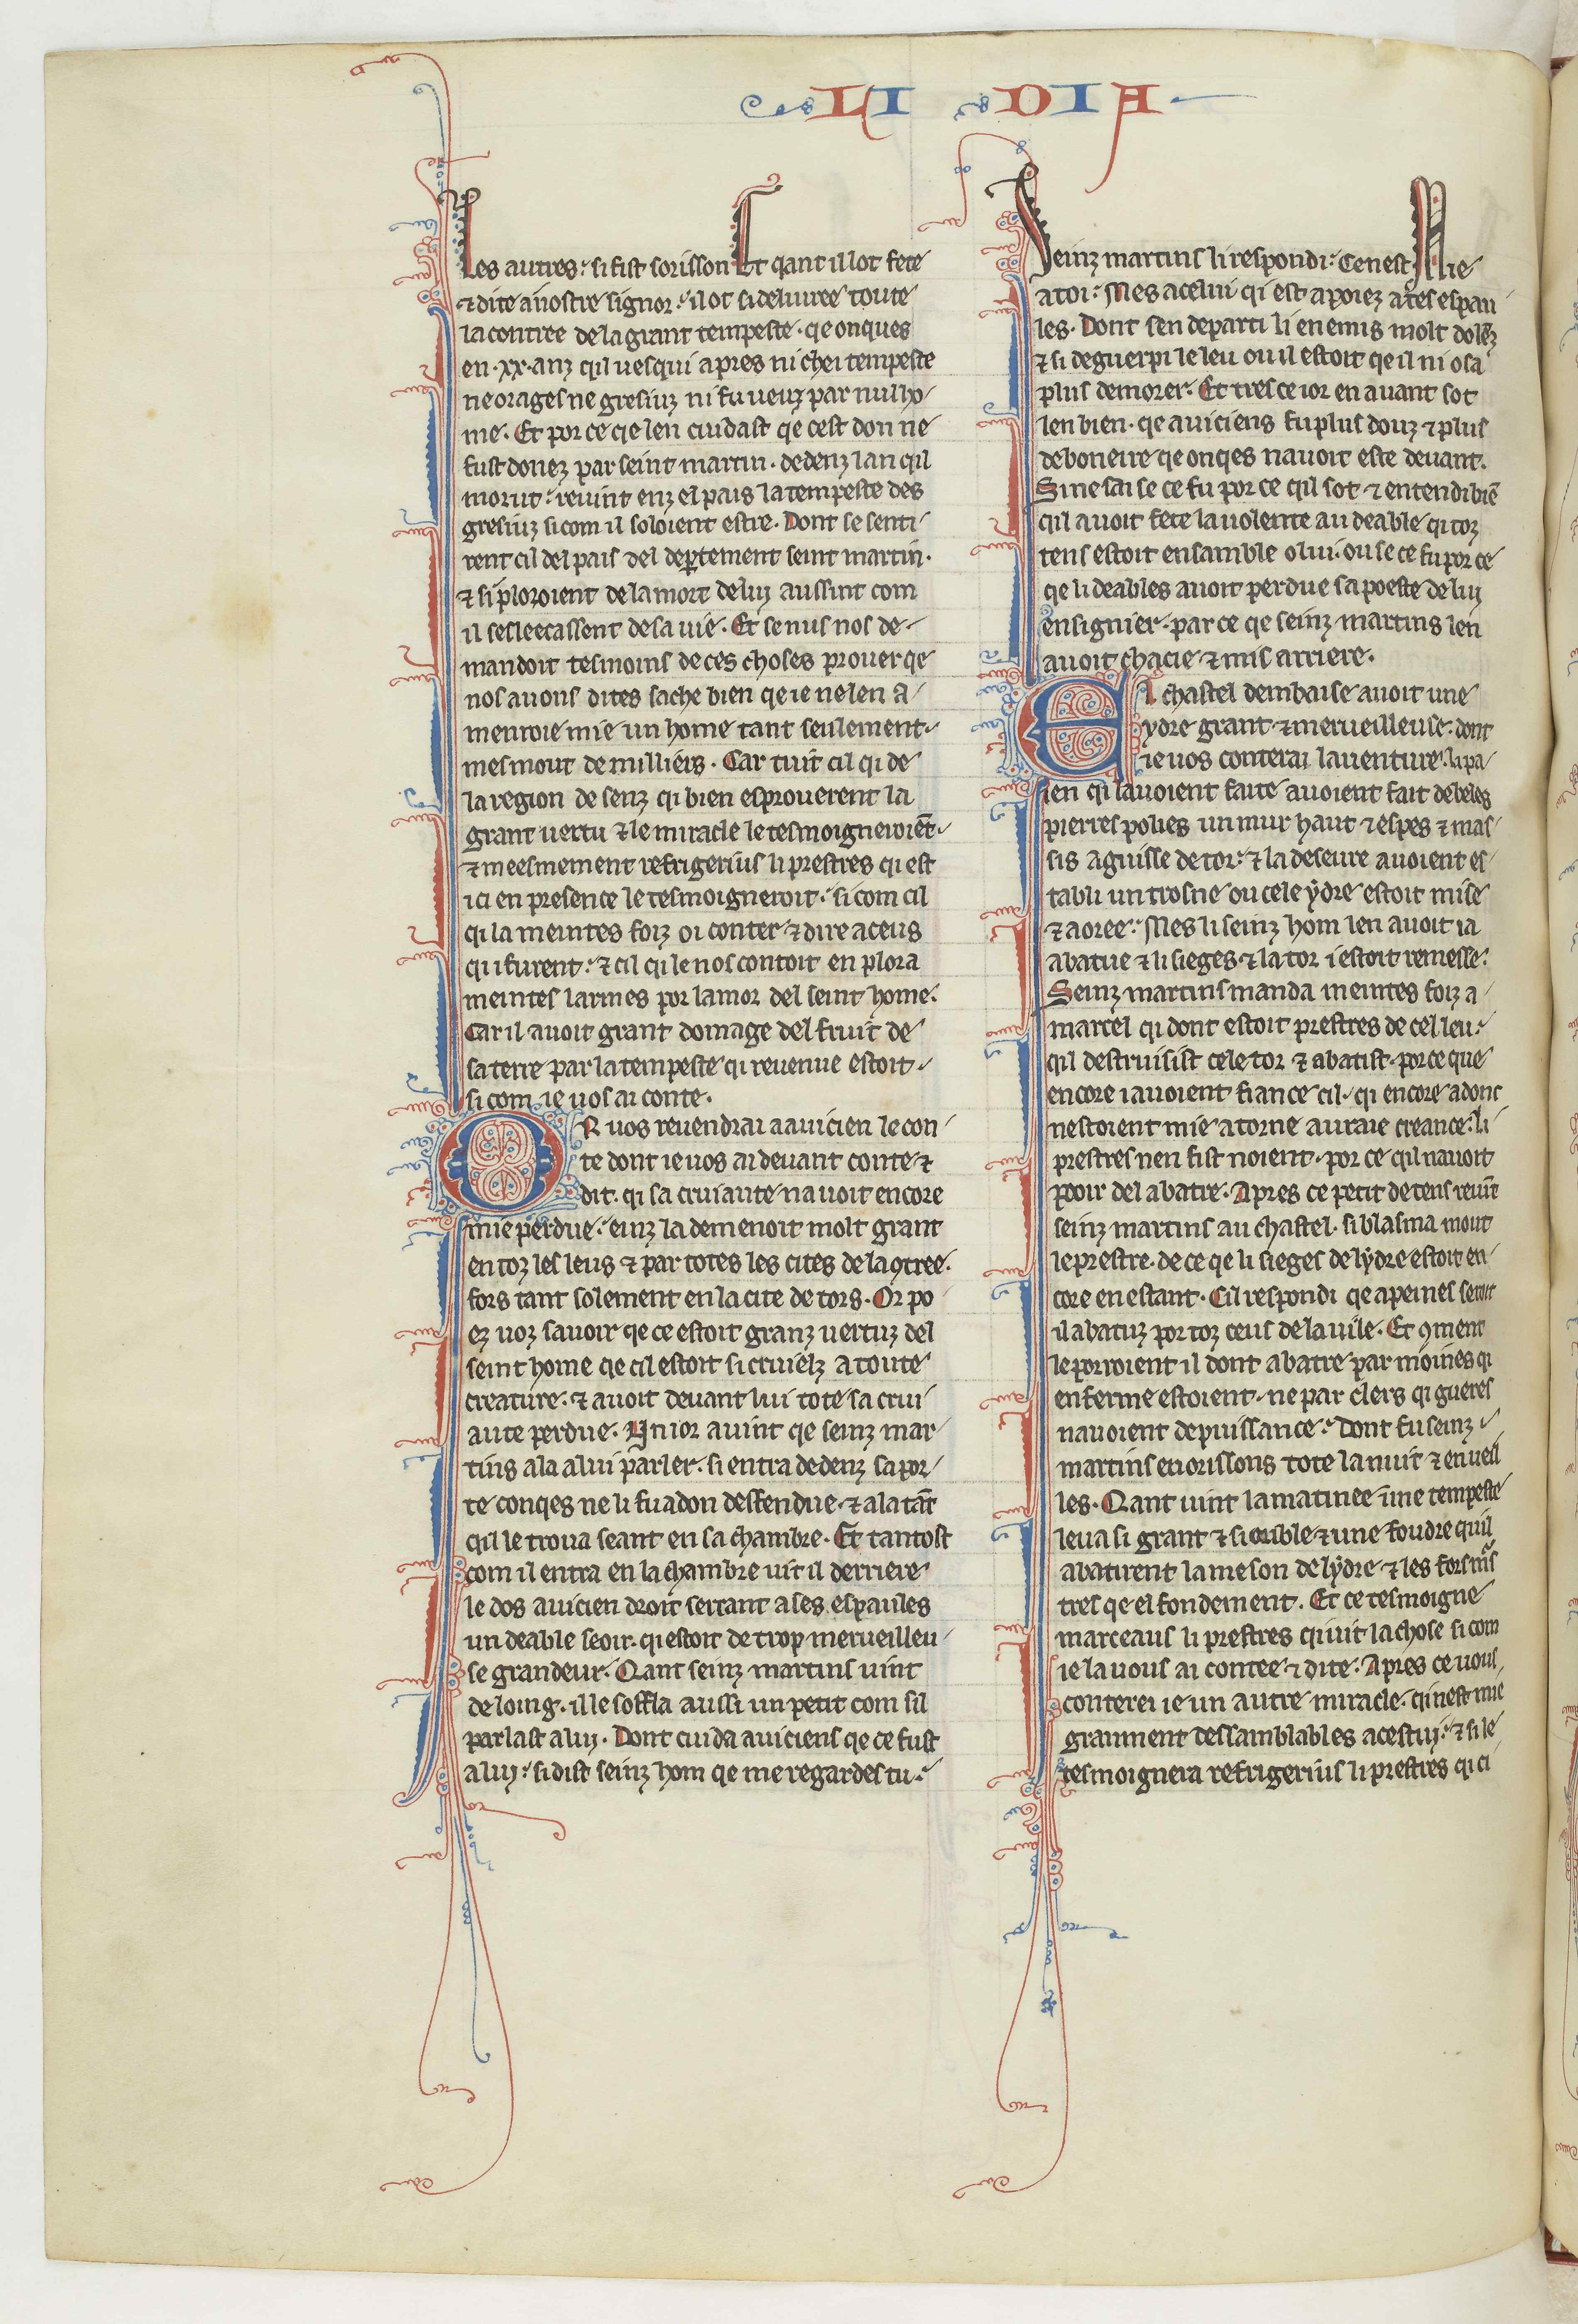 LI DIA
Les autres. si fist sorisson Et qant il lot fete
⁊ dite a nostre signor. il ot si deluuree toute
la contree de la grant tempeste. qe onques
en .xx. anz qil uesqui apres ni chei tempeste
ne orages ne gresiuz ni fu ueuz par null ho-
me. Et por ce qe len cuidast qe cest don ne
fust donez par seint martin. dedenz lan qil
morut. reuint enz el pais la tempeste des
gresiuz si com il soloient estre. Dont se senti-
rent cil del pais del deꝑtement seint martin.
⁊ si ploroient de la mort de luj aussint com
il sesleecassent de sa uie. Et se nus nos de-
mandoit tesmoins de ces choses prouer qe
nos auons dites sache bien qe ie ne len a-
menroie mie un home tant seulement.
mes mout de milliers. Car tuit cil qi de
la region de senz qi bien esprouerent la
grant uertu ⁊ le miracle le tesmoigneroiēt.
⁊ meesmement refrigerius li prestres qi est
ici en presence le tesmoigneroit. si com cil
qi la meintes foiz oi conter ⁊ dire a ceus
qi i furent. ⁊ cil qi le nos contoit en plora
meintes larmes por lamor del seint home.
Car il auoit grant domage del fruit de
sa terre par la tempeste qi reuenue estoit.
si com ie uos ai conte.
OR uos reuendrai a auicien le con-
te dont ie uos ai deuant conte ⁊
dit. qi sa cruiaute nauoit encore
mie perdue. einz la demenoit molt grant
en toz les leus ⁊ par totes les cites de la ꝯtree.
fors tant solement en la cite de tors. Or po
ez uoz sauoir qe ce estoit granz uertuz del
seint home qe cil estoit si cruielz a toute
creature. ⁊ auoit deuant lui tote sa crui
aute perdue. Un ior auint qe seinz mar-
tins ala a lui parler. si entra dedenz sa por-
te conqes ne li fu adon deffendue. ⁊ ala tāt
qil le troua seant en sa chambre. Et tantost
com il entra en la chambre uit il derriere
le dos auicien droit serrant a ses espaules
un deable seoir. qi estoit de trop merueilleu-
se grandeur. Qant seinz martins uint
de loing. il le soffla aussi un petit com sil
parlast a luj. Dont cuida auiciens qe ce fust
a luj. si dist seinz hom qe me regardes tu.
Seinz martins li respondi. Ce nest Mie
a toi. Mes a celui qi est apoiez a tes espau-
les. Dont sen departi li enemis molt dolēz
⁊ si deguerpi le leu ou il estoit qe il ni osa
plus demorer. Et tres ce ior en auant sot
len bien. qe auiciens fu plus douz ⁊ plus
deboneire qe onqes nauoit este deuant.
Si ne sai se ce fu por ce qil sot ⁊ entendi biē
qil auoit fete la uolente au deable qi toz
tens estoit ensamble o lui. ou se ce fu por ce
qe li deables auoit perdue sa poeste de luj
ensignier. par ce qe seinz martins len
auoit chacie ⁊ mis arriere.
El chastel dembaise auoit une
ydre grant ⁊ merueilleuse. dont
ie uos conterai lauenture. li pa-
ien qi lauoient faite auoient fait de beles
pierres polies un mur haut ⁊ espes ⁊ mas-
sis a guisse de tor. ⁊ la deseure auoient es-
tabli un trosne ou cele ydre estoit mise
⁊ aoree. Mes li seinz hom len auoit ia
abatue ⁊ li sieges ⁊ la tor i estoit remesse.
Seinz martins manda meintes foiz a
marcel qi dont estoit prestres de cel leu.
qil destruisist cele tor ⁊ abatist. por ce que
encore i auoient fiance cil. qi encore adonc
nestoient mie atorne a uraie creance. li
prestres nen fist noient. por ce qil nauoit
pooir del abatre. Apres ce petit de tens reuīt
seinz martins au chastel. si blasma mout
le prestre. de ce qe li sieges de lydre estoit en-
core en estant. Cil respondi qe a peines seroit
il abatuz por toz ceus de la uile. Et ꝯment
le porroient il dont abatre par moines qi
enferme estoient. ne par clers qi gueres
nauoient de puissance. Dont fu seinz
martins en orissons tote la nuit ⁊ en ueil
les. Qant uint la matinee une tempeste
leua si grant ⁊ si orrible ⁊ une foudre quil
abatirent la meson de lydre ⁊ les fors mᷣs
tres qe el fondement. Et ce tesmoigne
marceaus li prestres qi uit la chose si com
ie la uous ai contee ⁊ dite. Apres ce uous
conterei ie un autre miracle. qi nest mie
granment dessamblables a cestuj. ⁊ si le
tesmoignera refrigerius li prestres qi ci